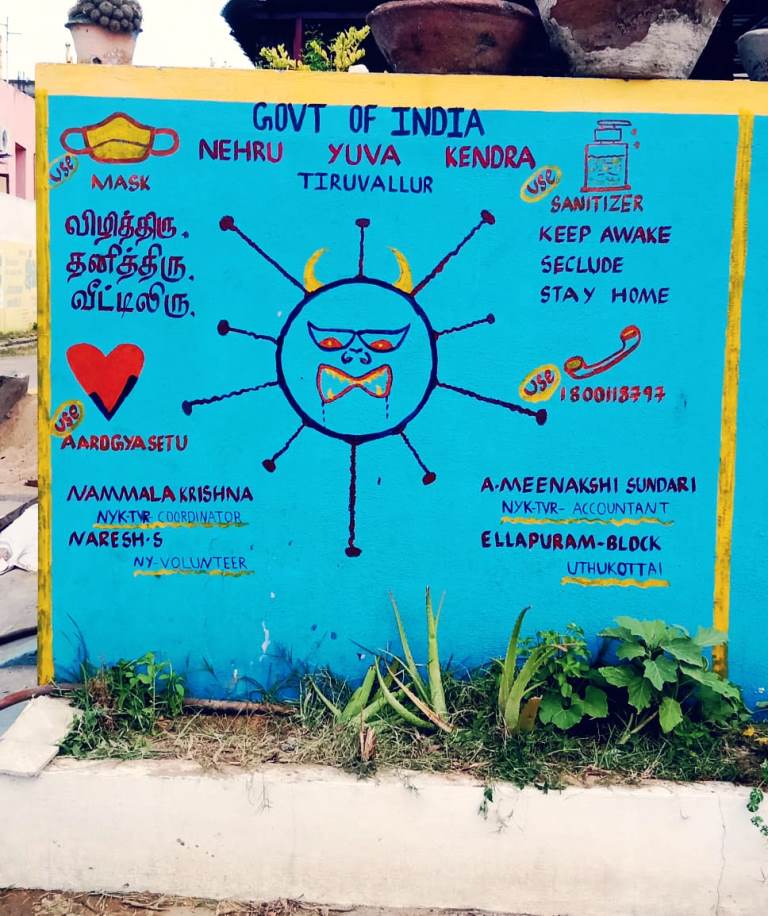 GOVT OF INDIA
NEHRU YUVA KENDRA
TIRUVALLUR
USE
MASK
USE
SANITIZER
விழித்திரு.
தனித்திரு.
வீட்டிலிரு.
KEEP AWAKE
SECLUDE
STAY HOME
USE
AAROGYASETU
USE
1800118797
NAMMALA KRISHNA
NYK-TVR- COORDINATOR
NARESH.S
NY-VOLUNTEER
A.MEENAKSHI SUNDARI
NYK-TVR- ACCOUNTANT
ELLAPURAM-BLOCK
UTHUKOTTAI